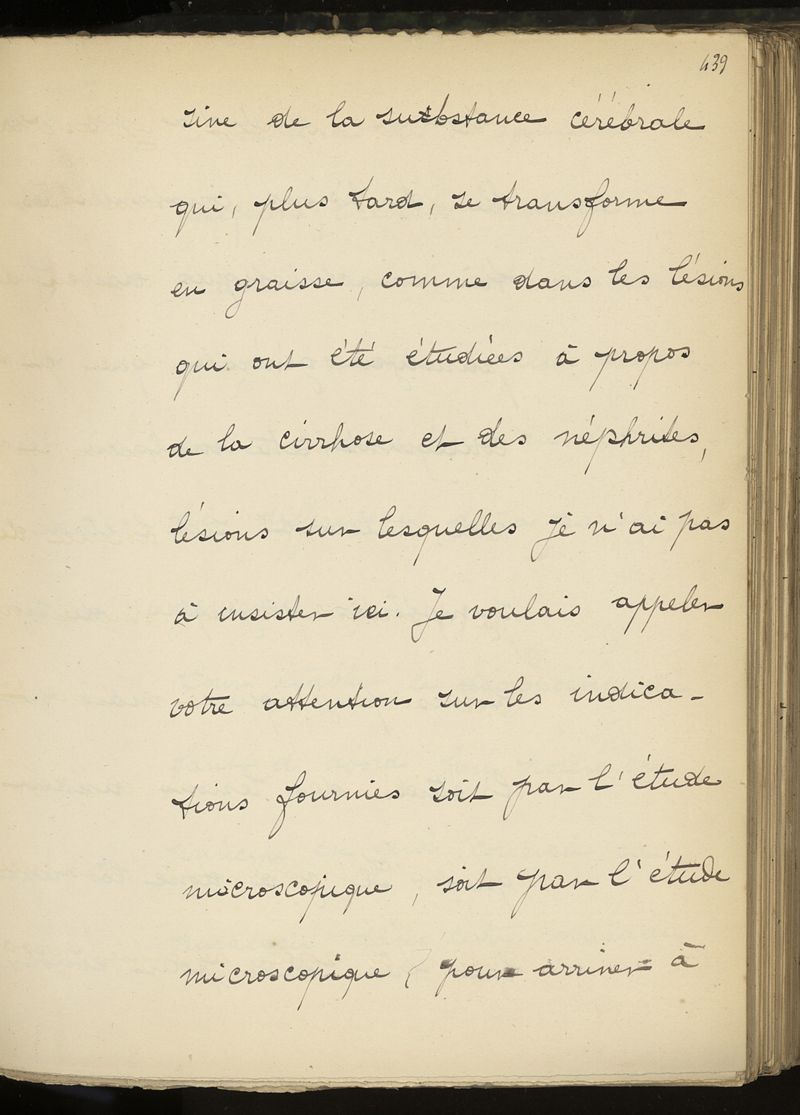 439
sine de la substance cérébrale
qui, plus tard, se transforme
en graisse, comme dans les lésions
qui ont été étudiées à propos
de la cirrhose et des néphrites,
lésions sur lesquelles je n'ai pas
à insister ici. Je voulais appeler
votre attention sur les indica-
tions fournies soit par l'étude
microscopique, soit par l'étude
microscopique, pour arriver à